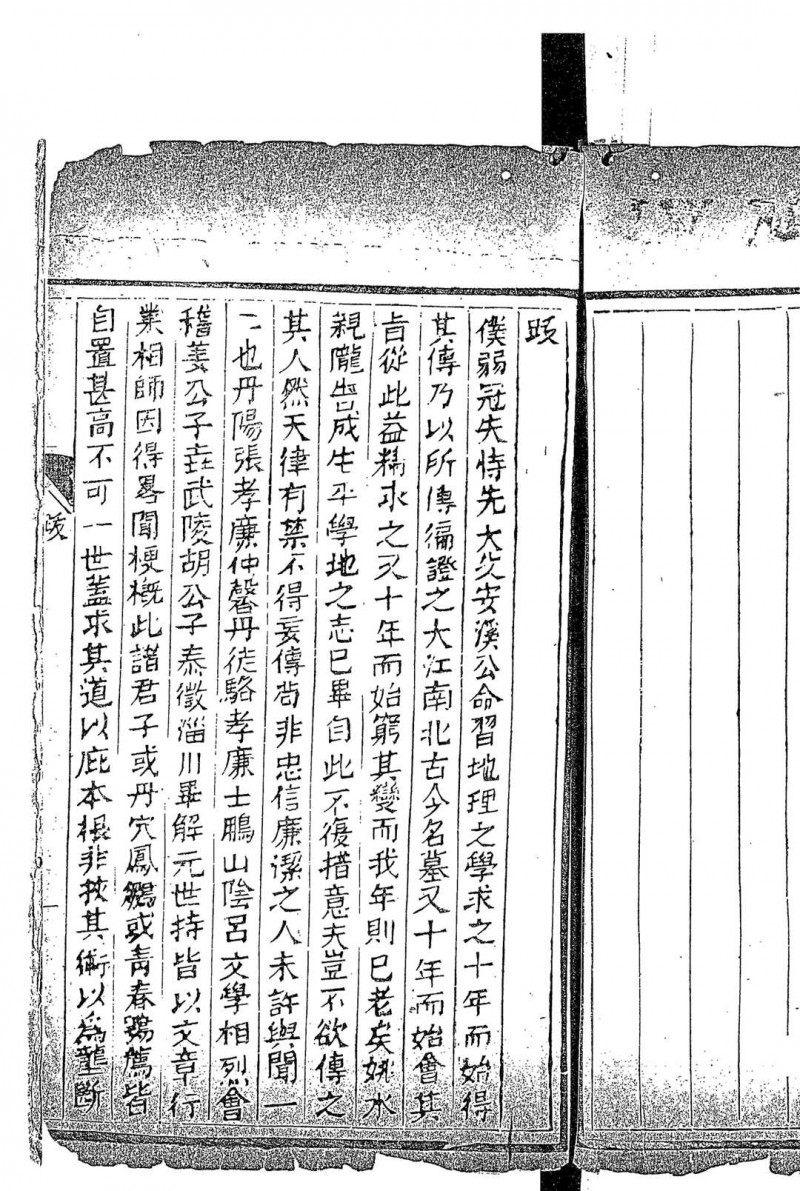 跋
僕弱冠失恃先大父安溪公命習地理之學求之十年而始得
其傳乃以所傳徧證之大江南北古今名墓又十年而始會其
旨從此益精求之又十年而始窮其變而我年則已老矣姚水
親隴告成生平學地之志已畢自此不復措意夫豈不欲傳之
其人然天律有禁不得妄傳苟非忠信廉潔之人未許與聞一
二也丹陽張孝廉仲馨丹徒駱孝廉士鵬山陰呂文學相烈會
稽姜公子垚武陵胡公子泰徵淄川畢解元世持皆以文章行
業相師因得畧聞梗概此諸君子或丹穴鳳鶵或青春鶚薦皆
自置甚高不可一世蓋求其道以庇本根非挾其術以爲壟斷
跋